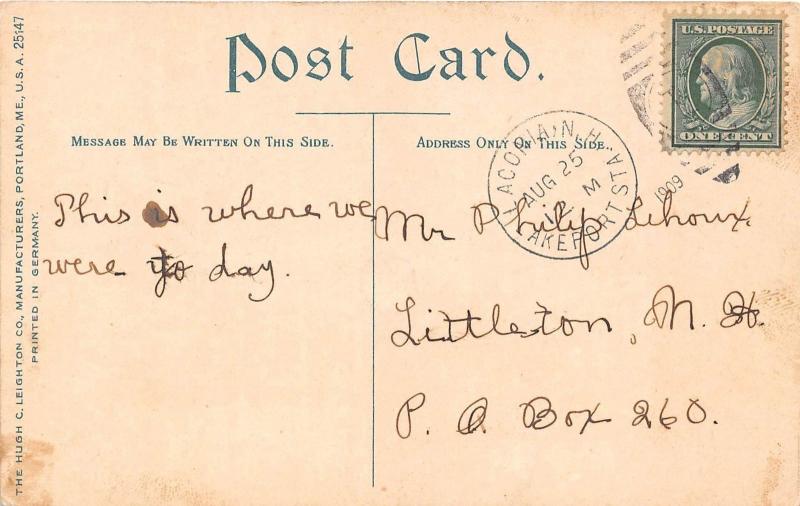 Post Card.
MESSAGE MAY BE WRITTEN ON THIS SIDE.
ADDRESS ONLY ON THIS SIDE.
U.S. POSTAGE
ONE CENT
LACONIA, N.H.
AUG 25
M
1909
LAKEPORT STA.
This is where we
were to day.
Mr Philip Lehoux.
Littleton, N. H.
P. O. Box 260.
THE HUGH C. LEIGHTON CO., MANUFACTURERS, PORTLAND, ME., U.S.A. 25147
PRINTED IN GERMANY.